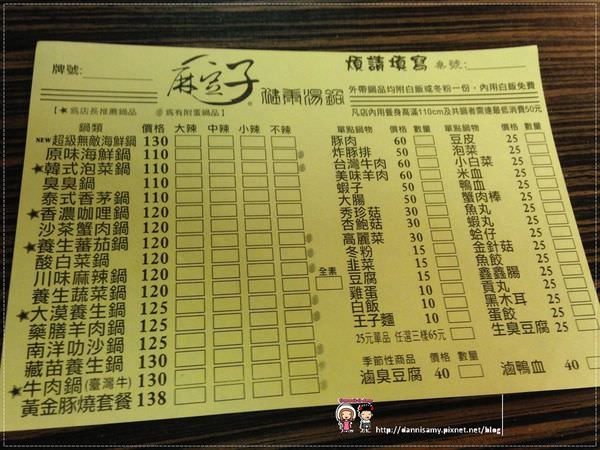 牌號:
麻豆子
健康湯鍋
煩請填寫 桌號:
外帶鍋品均附白飯或冬粉一份,內用白飯免費
【★為店長推薦鍋品 為有附蛋鍋品】
凡店內用餐身高滿110cm及共鍋者需達最低消費50元
鍋類 價格 大辣 中辣 小辣 不辣
NEW 超級無敵海鮮鍋 130
原味海鮮鍋 110
★韓式泡菜鍋 110
臭臭鍋 110
泰式香茅鍋 110
★香濃咖哩鍋 120
沙茶蟹肉鍋 120
★養生蕃茄鍋 120
酸白菜鍋 120
川味麻辣鍋 120
養生蔬菜鍋 120 全素
★大漠養生鍋 125
藥膳羊肉鍋 125
南洋叻沙鍋 125
藏苗養生鍋 130
★牛肉鍋(臺灣牛) 130
黃金豚燒套餐 138
單點鍋物 價格 數量
豚肉 60
炸豚排 50
台灣牛肉 60
美味羊肉 60
蝦子 50
大腸 50
秀珍菇 30
杏鮑菇 30
高麗菜 30
冬粉 15
韭菜 15
豆腐 15
雞蛋 10
白飯 10
王子麵 10
25元單品 任選三樣65元
單點鍋物 價格 數量
豆皮 25
泡菜 25
小白菜 25
米血 25
鴨血 25
蟹肉棒 25
魚丸 25
蝦丸 25
蛤仔 25
金針菇 25
魚餃 25
鑫鑫腸 25
貢丸 25
黑木耳 25
蛋餃 25
生臭豆腐 25
季節性商品 價格 數量
滷臭豆腐 40
滷鴨血 40
http://dannisamy.pixnet.net/blog